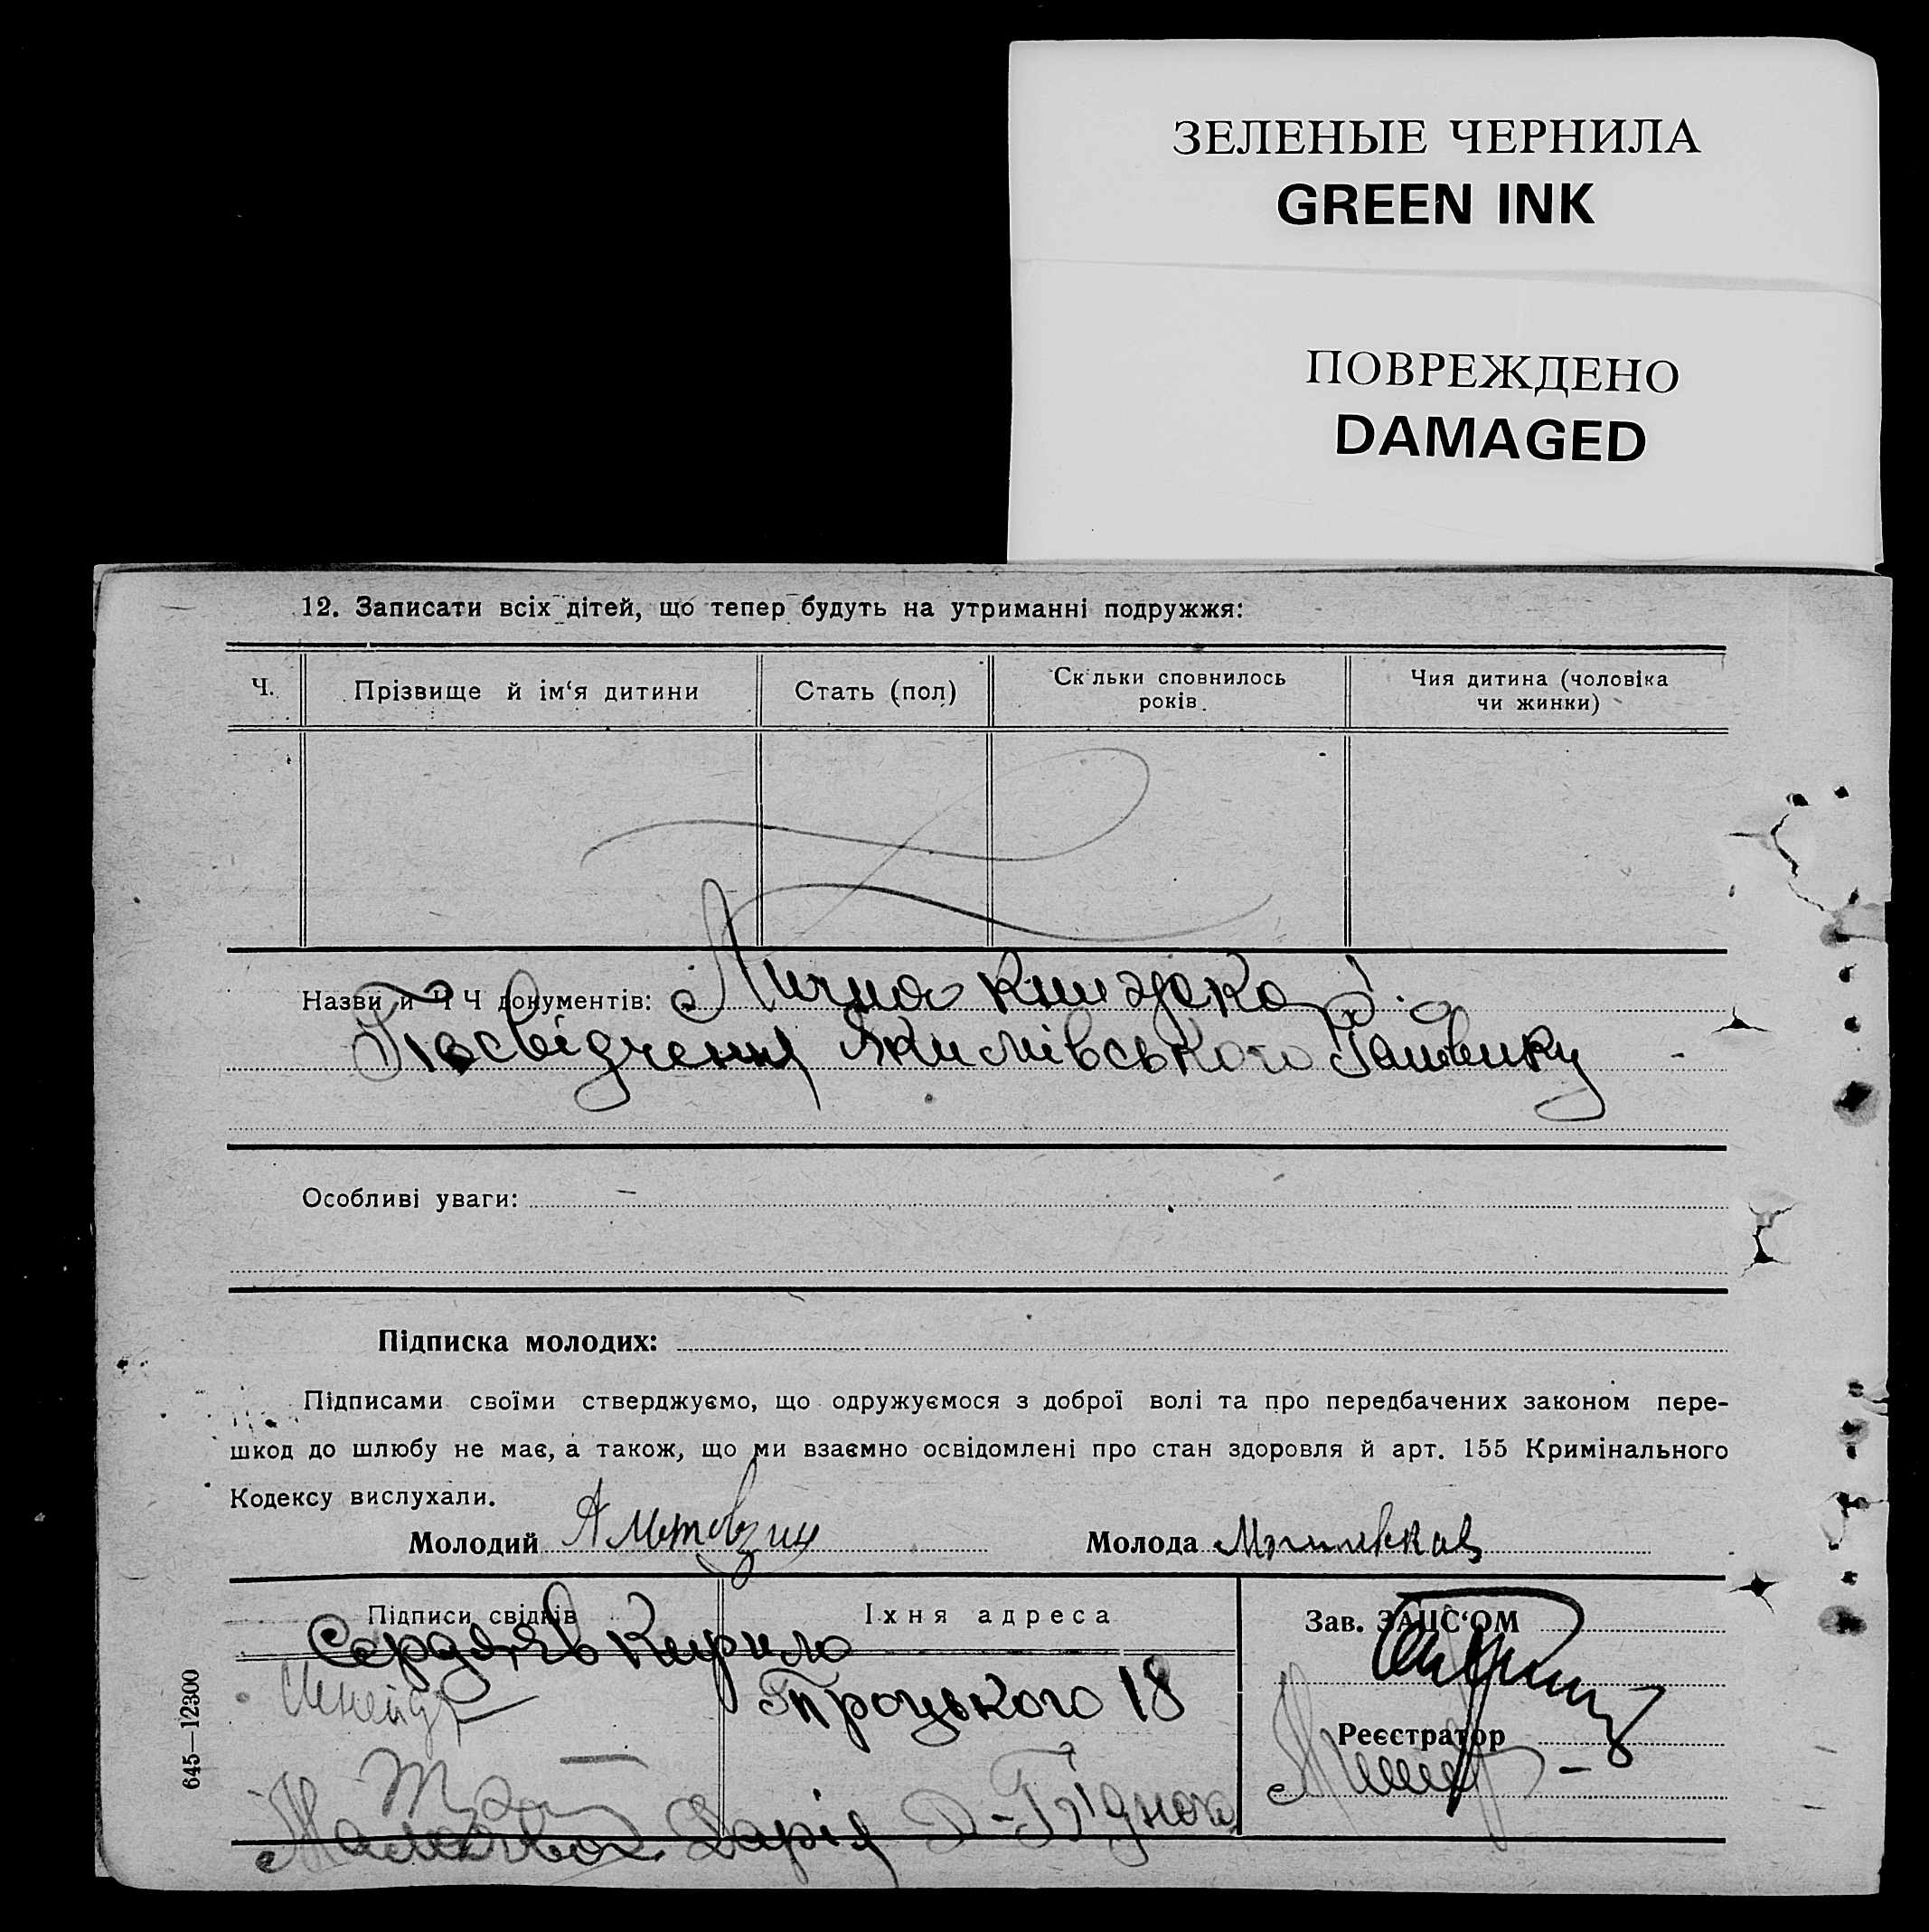 ЗЕЛЕНЫЕ ЧЕРНИЛА
GREEN INK
ПОВРЕЖДЕНО
DAMAGED
12. Записати всіх дітей, що тепер будуть на утриманні подружжя:
Ч. Прізвище й ім‘я дитини Стать (пол) Скільки сповнилось років Чия дитина (чоловіка чи жинки)
Назви й Ч Ч документів: Лична книжка
Посвідчення Якимівського
Особливі уваги:
Підписка молодих:
Підписами своїми стверджуємо, що одружуємося з доброї волі та про передбачених законом пере-
шкод до шлюбу не має, а також, що ми взаємно освідомлені про стан здоровля й арт. 155 Кримінального
Кодексу вислухали.
Молодий Молода
Підписи свідків Їхня адреса Зав. ЗАПС‘ОМ
Кирило
Троцького 18
Реєстратор
Дарія
645—12300